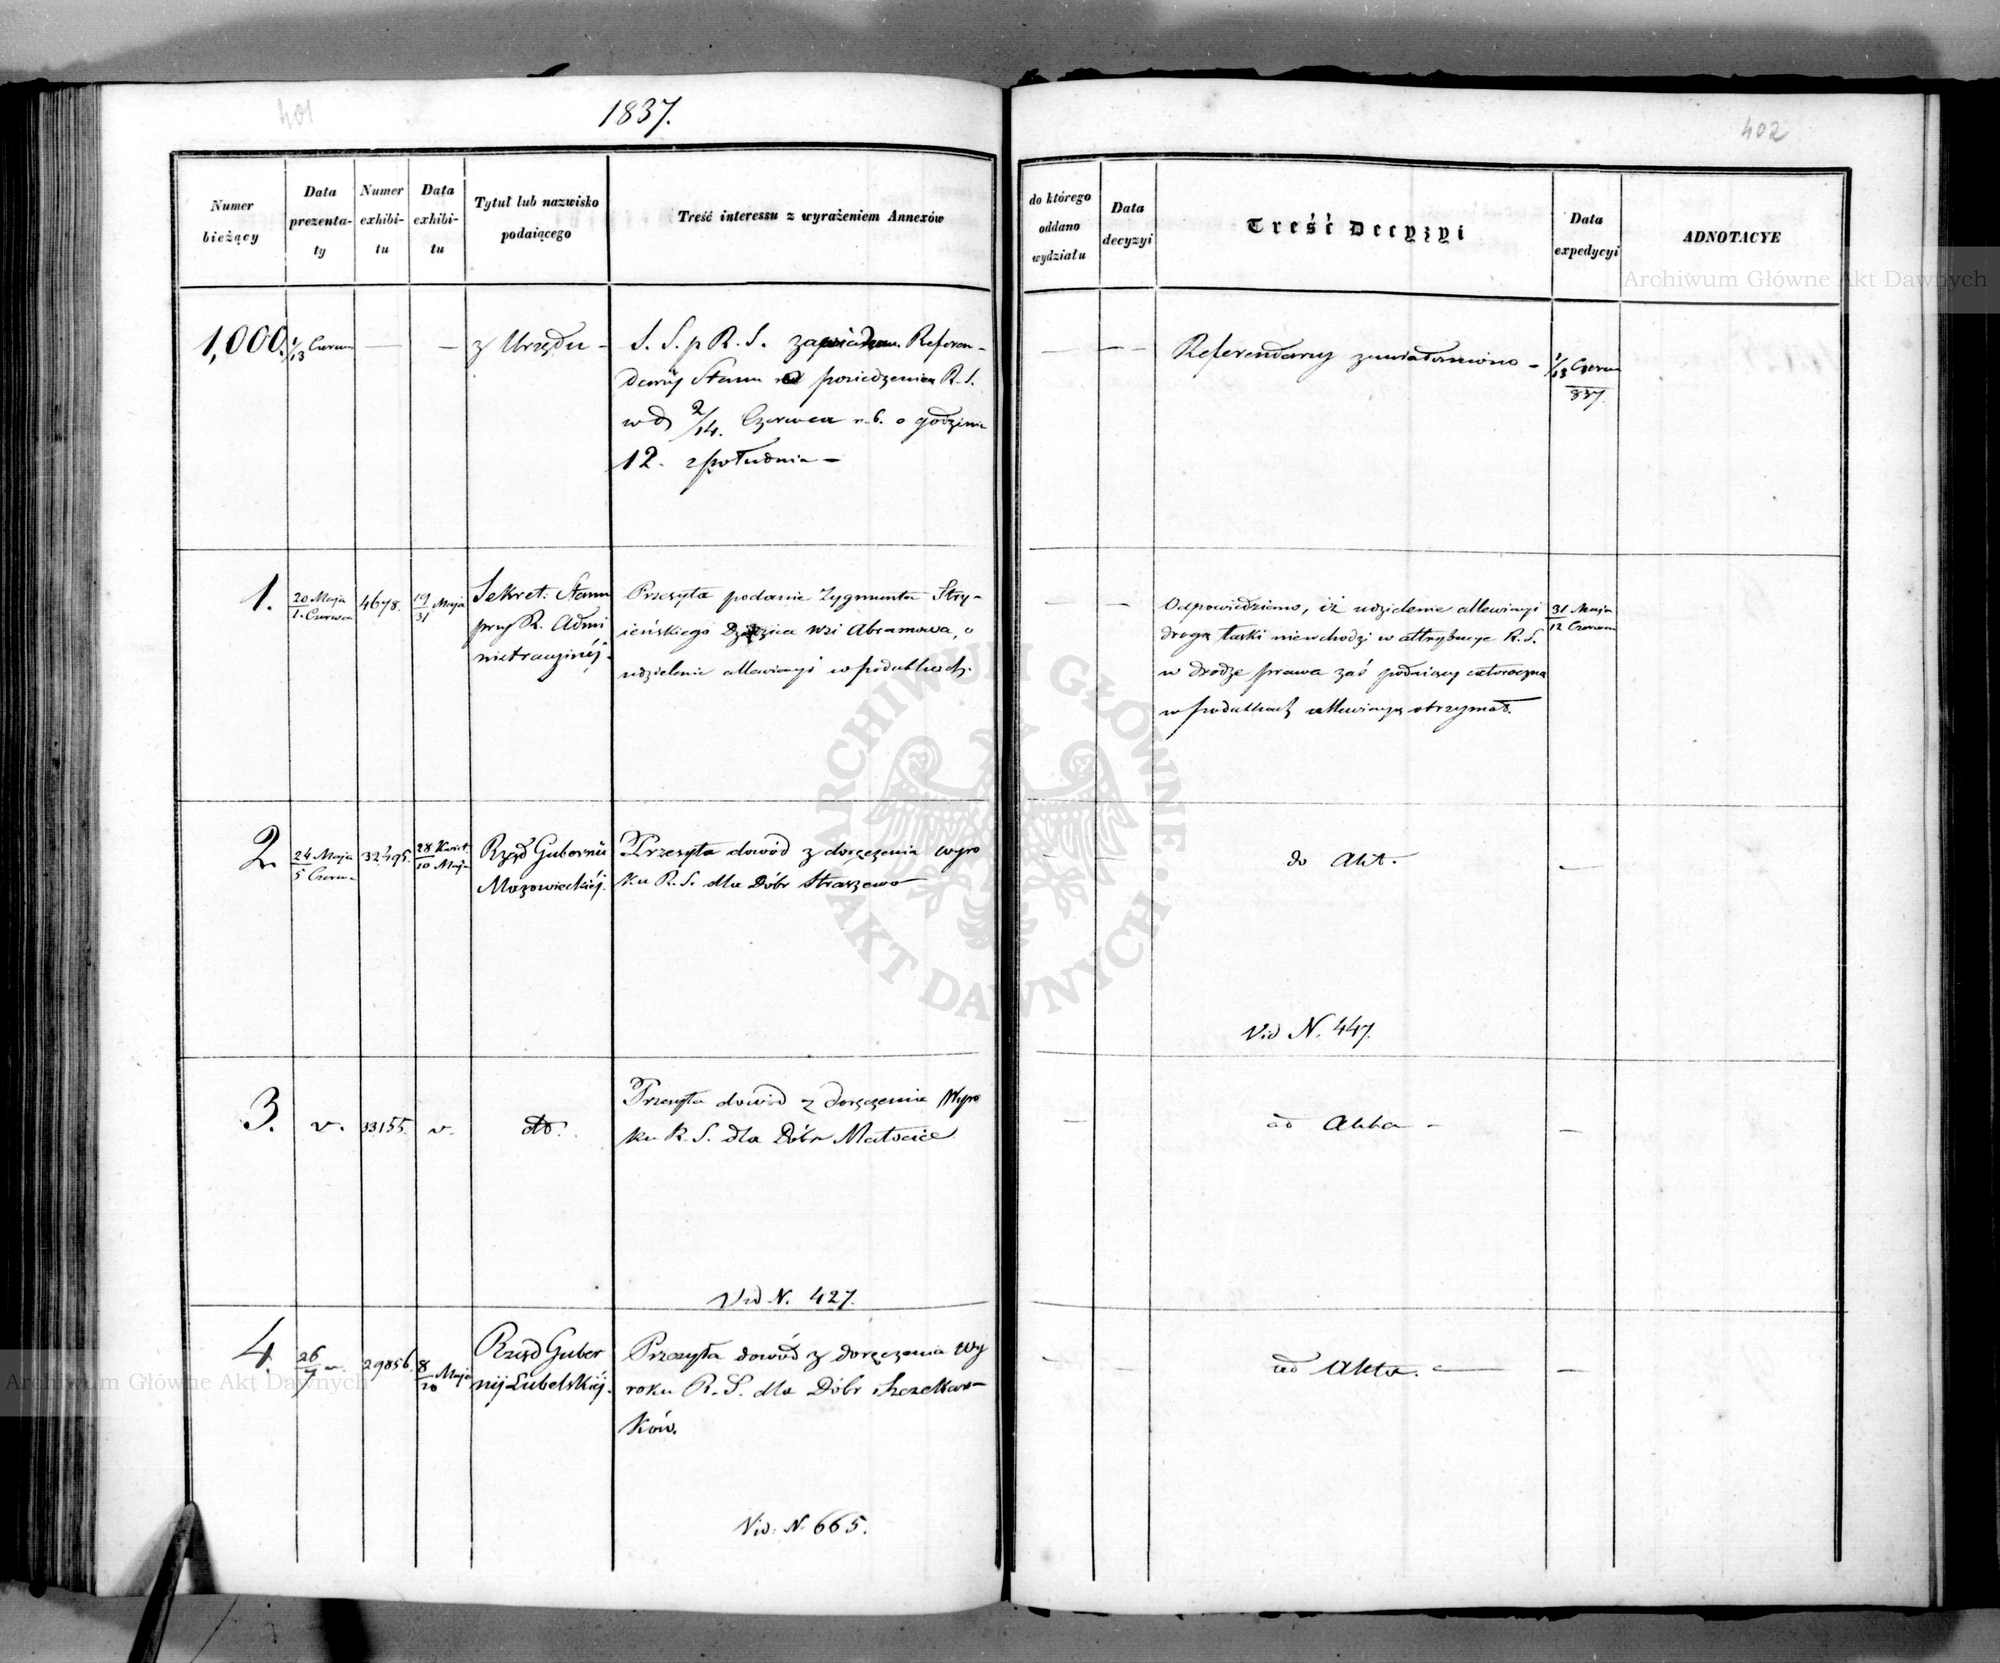 401
1837.
402
Numer
bieżący
Data
prezenta-
ty
Numer
exhibi-
tu
Data
exhibi-
tu
Tytuł lub nazwisko
podaiącego
Treść interessu z wyrażeniem Annexów
do którego
oddano
wydziału
Data
decyzyi
Treść Decyzyi
Data
expedycyi
ADNOTACYE
1,000.
1/13 Czerw
z Urzędu -
S. S. p R. S. zawiadam. Referen-
darzy Stanu o posiedzeniu R. S.
w d 2/14. Czerwca r. b. o godzinie
12. z południa -
Referendarzy zawiadomiono -
1/13 Czerw
837.
1.
20 Maja
1. Czerwca
4678.
19/31 Maja
Sekret: Stanu
przy R. Admi
nistracyjnéj.
Przesyła podanie Zygmunta Stry-
ieńskiego Dziedzica wsi Abramowa, o
udzielenie allewiacyi w podatkach.
Odpowiedziano, iż udzielenie allewiacyi
drogą łaski niewchodzi w attrybucye R. S.
w drodze prawa zaś podaiący
w podatkach allewiacyą otrzymał.
31 Maja
12 Czerwca
2.
24 Maja
5 Czerwca
32,495.
28 Kwiet
10 Maja
Rząd Gubernii
Mazowieckiéj.
Przesyła dowód z doręczenia wyro
ku R. S. dla Dóbr Straszewo
do Akt.
Vid N. 447.
3.
v.
33155.
v.
dto.
Przesyła dowód z doręczenia Wyro
ku R. S. dla Dóbr Małocice
ad Akta -
Vid N. 427.
4.
26/7 v.
29856.
8/20 Maja
Rząd Guber
nij Lubelskiéj.
Przesyła dowód z doręczenia wy
roku R. S. dla Dóbr Szczekar-
ków.
ad Akta.
Vid: N. 665.
Archiwum Główne Akt Dawnych
ARCHIWUM GŁÓWNE AKT DAWNYCH
Archiwum Główne Akt Dawnych